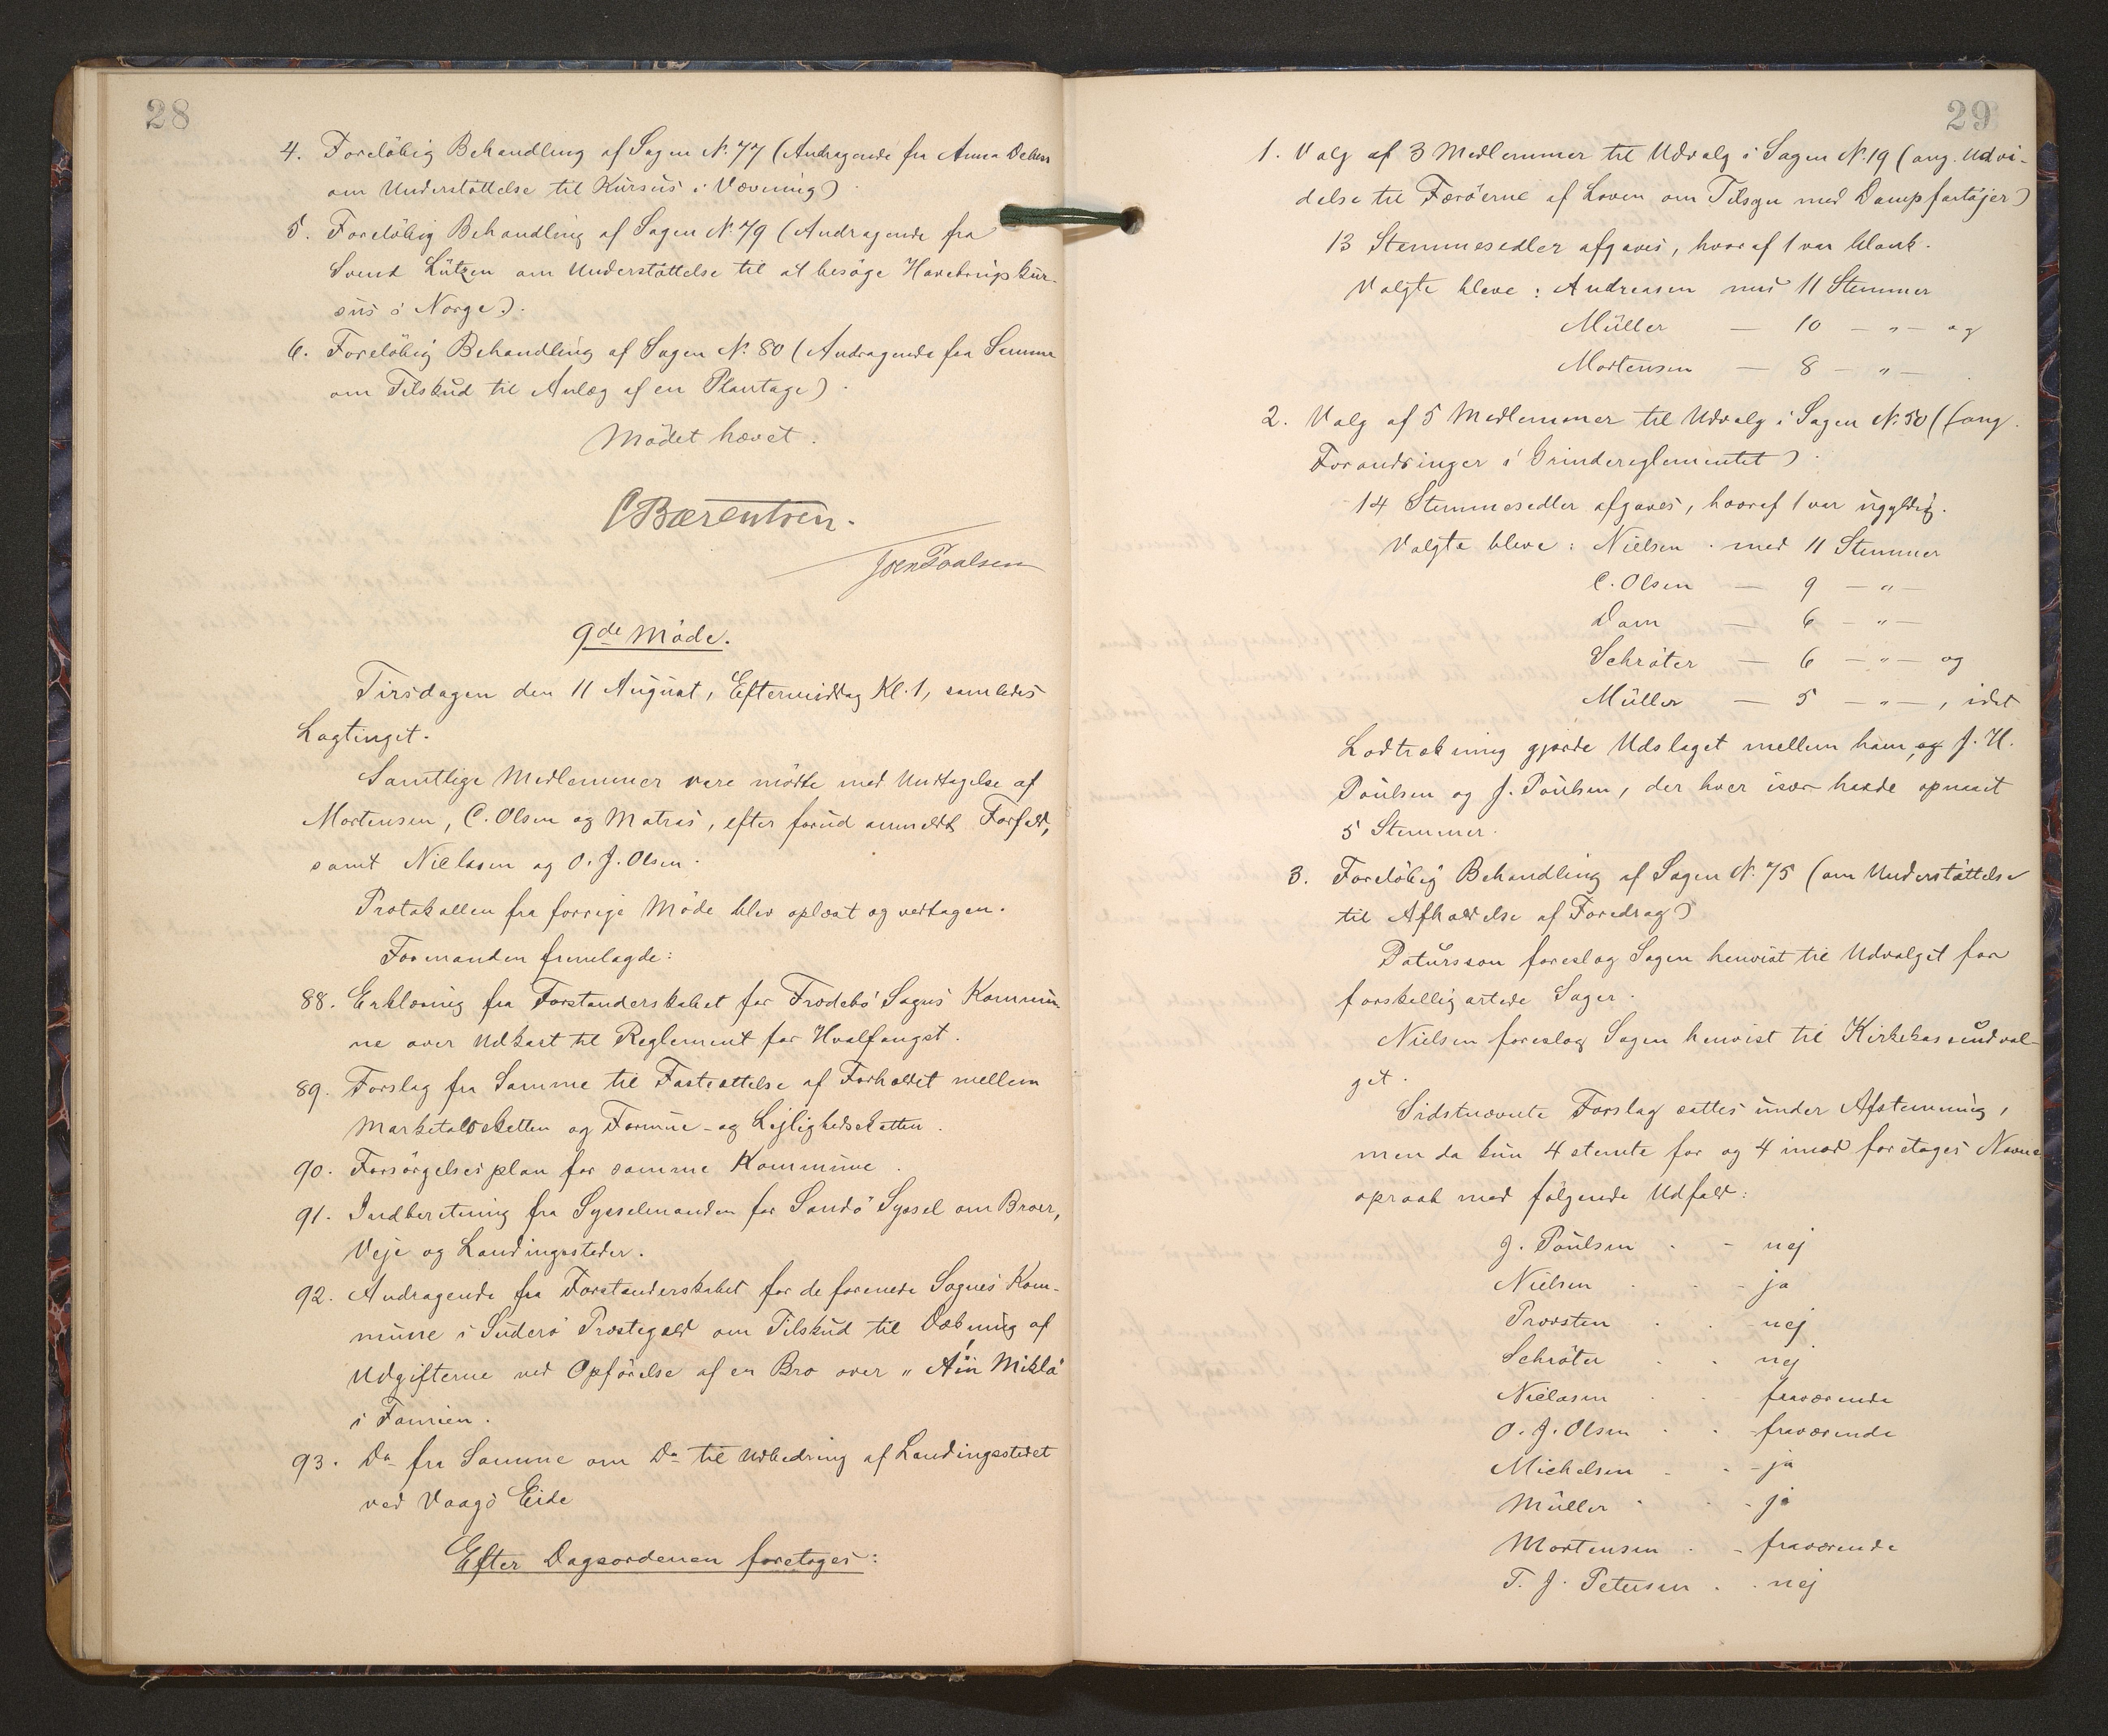 28
4. Foreløbig Behandling af Sagen N. 77 (Andragende fra Anna Debes
om Understøttelse til Kursus i Vævning)
5. Foreløbig Behandling af Sagen N. 79 (Andragende fra
Svend Lützen om Understøttelse til at besøge Havebrugskur-
sus i Norge).
6. Foreløbig Behandling af Sagen N. 80 (Andragende fra Samme
om Tilskud til Anlæg af en Plantage).
Mødet hævet.
CBærentsen.
Joen Poulsen
9de Møde.
Tirsdagen den 11 August, Eftermiddag Kl. 1, samledes
Lagtinget.
Samtlige Medlemmer vare mødte med Undtagelse af
Mortensen, C. Olsen og Matras, efter forud anmeldt Forfald,
samt Niclasen og O. J. Olsen.
Protokollen fra forrige Møde blev oplæst og vedtagen.
Formanden fremlagde:
88. Erklæring fra Forstanderskabet for Frodebø Sogns Kommu-
ne over Udkast til Reglement for Hvalfangst.
89. Forslag fra Samme til Fastsættelse af Forholdet mellem
Marketalsskatten og Formue- og Lejlighedsskatten.
90. Forsørgelsesplan for samme Kommune.
91. Indberetning fra Sysselmanden for Sandø Syssel om Broer,
Veje og Landingssteder.
92. Andragende fra Forstanderskabet for de forenede Sognes Kom-
mune i Suderø Præstegæld om Tilskud til Dækning af
Udgifterne ved Opførelse af en Bro over "Áin Mikla"
i Famien.
93. Do fra Samme om Do til Udbedring af Landingsstedet
ved Vaags Eide
Efter Dagsordenen foretoges:
29
1. Valg af 3 Medlemmer til Udvalg i Sagen N. 19 (ang. Udvi-
delse til Færøerne af Loven om Tilsyn med Dampfartøjer)
13 Stemmesedler afgaves, hvoraf 1 var blank.
Valgte bleve: Andreasen med 11 Stemmer
Müller — 10 — " — og
Mortensen — 8 — " —
2. Valg af 5 Medlemmer til Udvalg i Sagen N. 50 ((ang.
Forandringer i Grindereglementet)
14 Stemmesedler afgaves, hvoraf 1 var ugyldig.
Valgte bleve: Nielsen med 11 Stemmer
C. Olsen — 9 — " —
Dam — 6 — " —
Schrøter — 6 — " — og
Müller — 5 — " —, idet
Lodtrækning gjorde Udslaget mellem ham, og J. H.
Poulsen og J. Poulsen, der hver især havde opnaaet
5 Stemmer.
3. Foreløbig Behandling af Sagen N. 75 (om Understøttelse
til Afholdelse af Foredrag)
Patursson foreslog Sagen henvist til Udvalget for
forskelligartede Sager.
Nielsen foreslog Sagen henvist til Kirkekasseudval-
get.
Sidstnævnte Forslag sattes under Afstemning,
men da kun 4 stemte for og 4 imod foretoges Navne
opraab med følgende Udfald:
J. Poulsen - nej
Nielsen - ja
Provsten - nej
Schrøter - nej
Niclasen - fraværende
O. J. Olsen - fraværende
Michelsen - ja
Müller - ja
Mortensen - fraværende
T. J. Petersen - nej